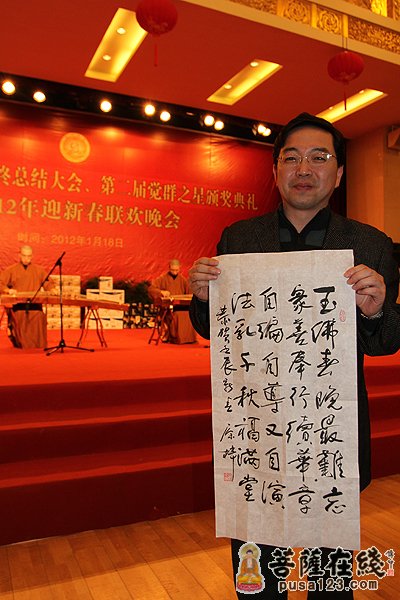 终总结大会、第二届觉群之星颁奖典礼
12年迎新春联欢晚会
时间：2012年1月18日
玉佛春晚最難忘
衆善奉行續華章
自编自導又自演
法乳千秋福滿堂
恭賀壬辰新春
菩薩在綫
pusa123.com